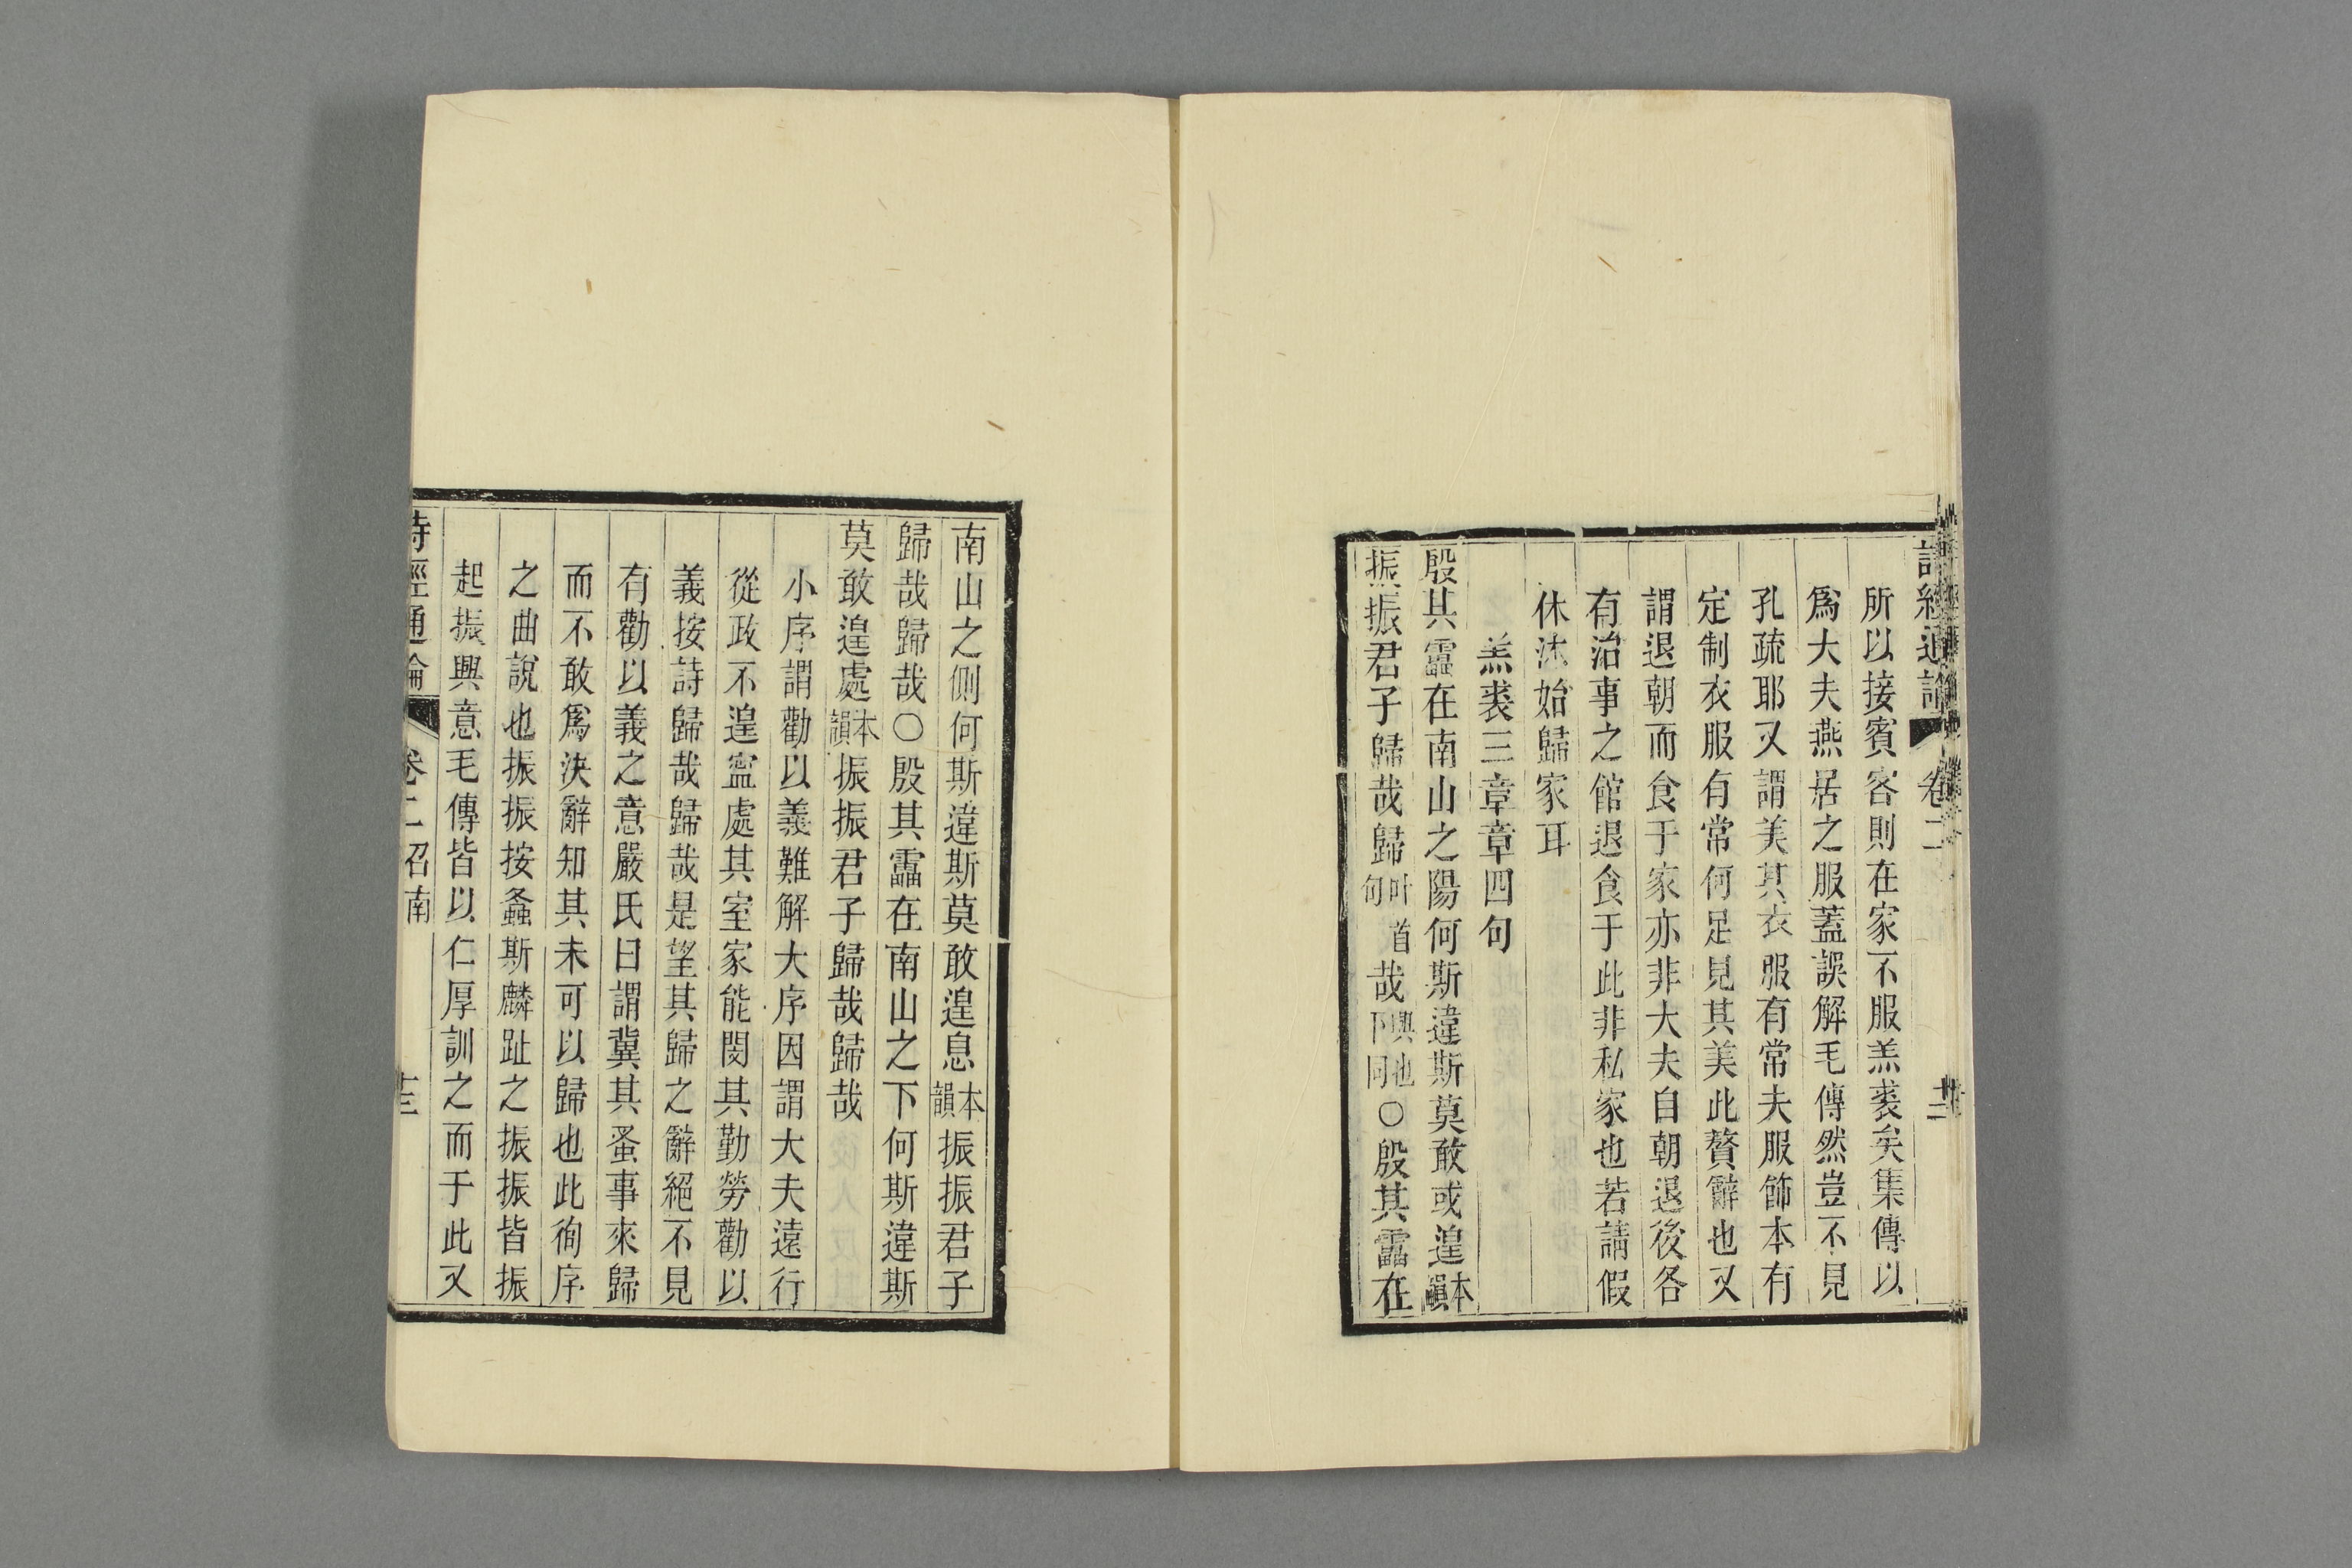 詩經通論 卷二 十二
所以接賓客則在家不服羔裘矣集傳以
爲大夫燕居之服蓋誤解毛傳然豈不見
孔疏耶又謂美其衣服有常夫服飾本有
定制衣服有常何足見其美此贅辭也又
謂退朝而食于家亦非大夫自朝退後各
有治事之館退食于此非私家也若請假
休沐始歸家耳
羔裘三章章四句
殷其靁在南山之陽何斯違斯莫敢或遑本韻
振振君子歸哉歸叶首句哉興也下同○殷其靁在
南山之側何斯違斯莫敢遑息本韻振振君子
歸哉歸哉○殷其靁在南山之下何斯違斯
莫敢遑處本韻振振君子歸哉歸哉
小序謂勸以義難解大序因謂大夫遠行
從政不遑寍處其室家能閔其勤勞勸以
義按詩歸哉歸哉是望其歸之辭絕不見
有勸以義之意嚴氏曰謂冀其蚤事來歸
而不敢爲決辭知其未可以歸也此徇序
之曲說也振振按螽斯麟趾之振振皆振
起振興意毛傳皆以仁厚訓之而于此又
詩經通論 卷二召南 十三